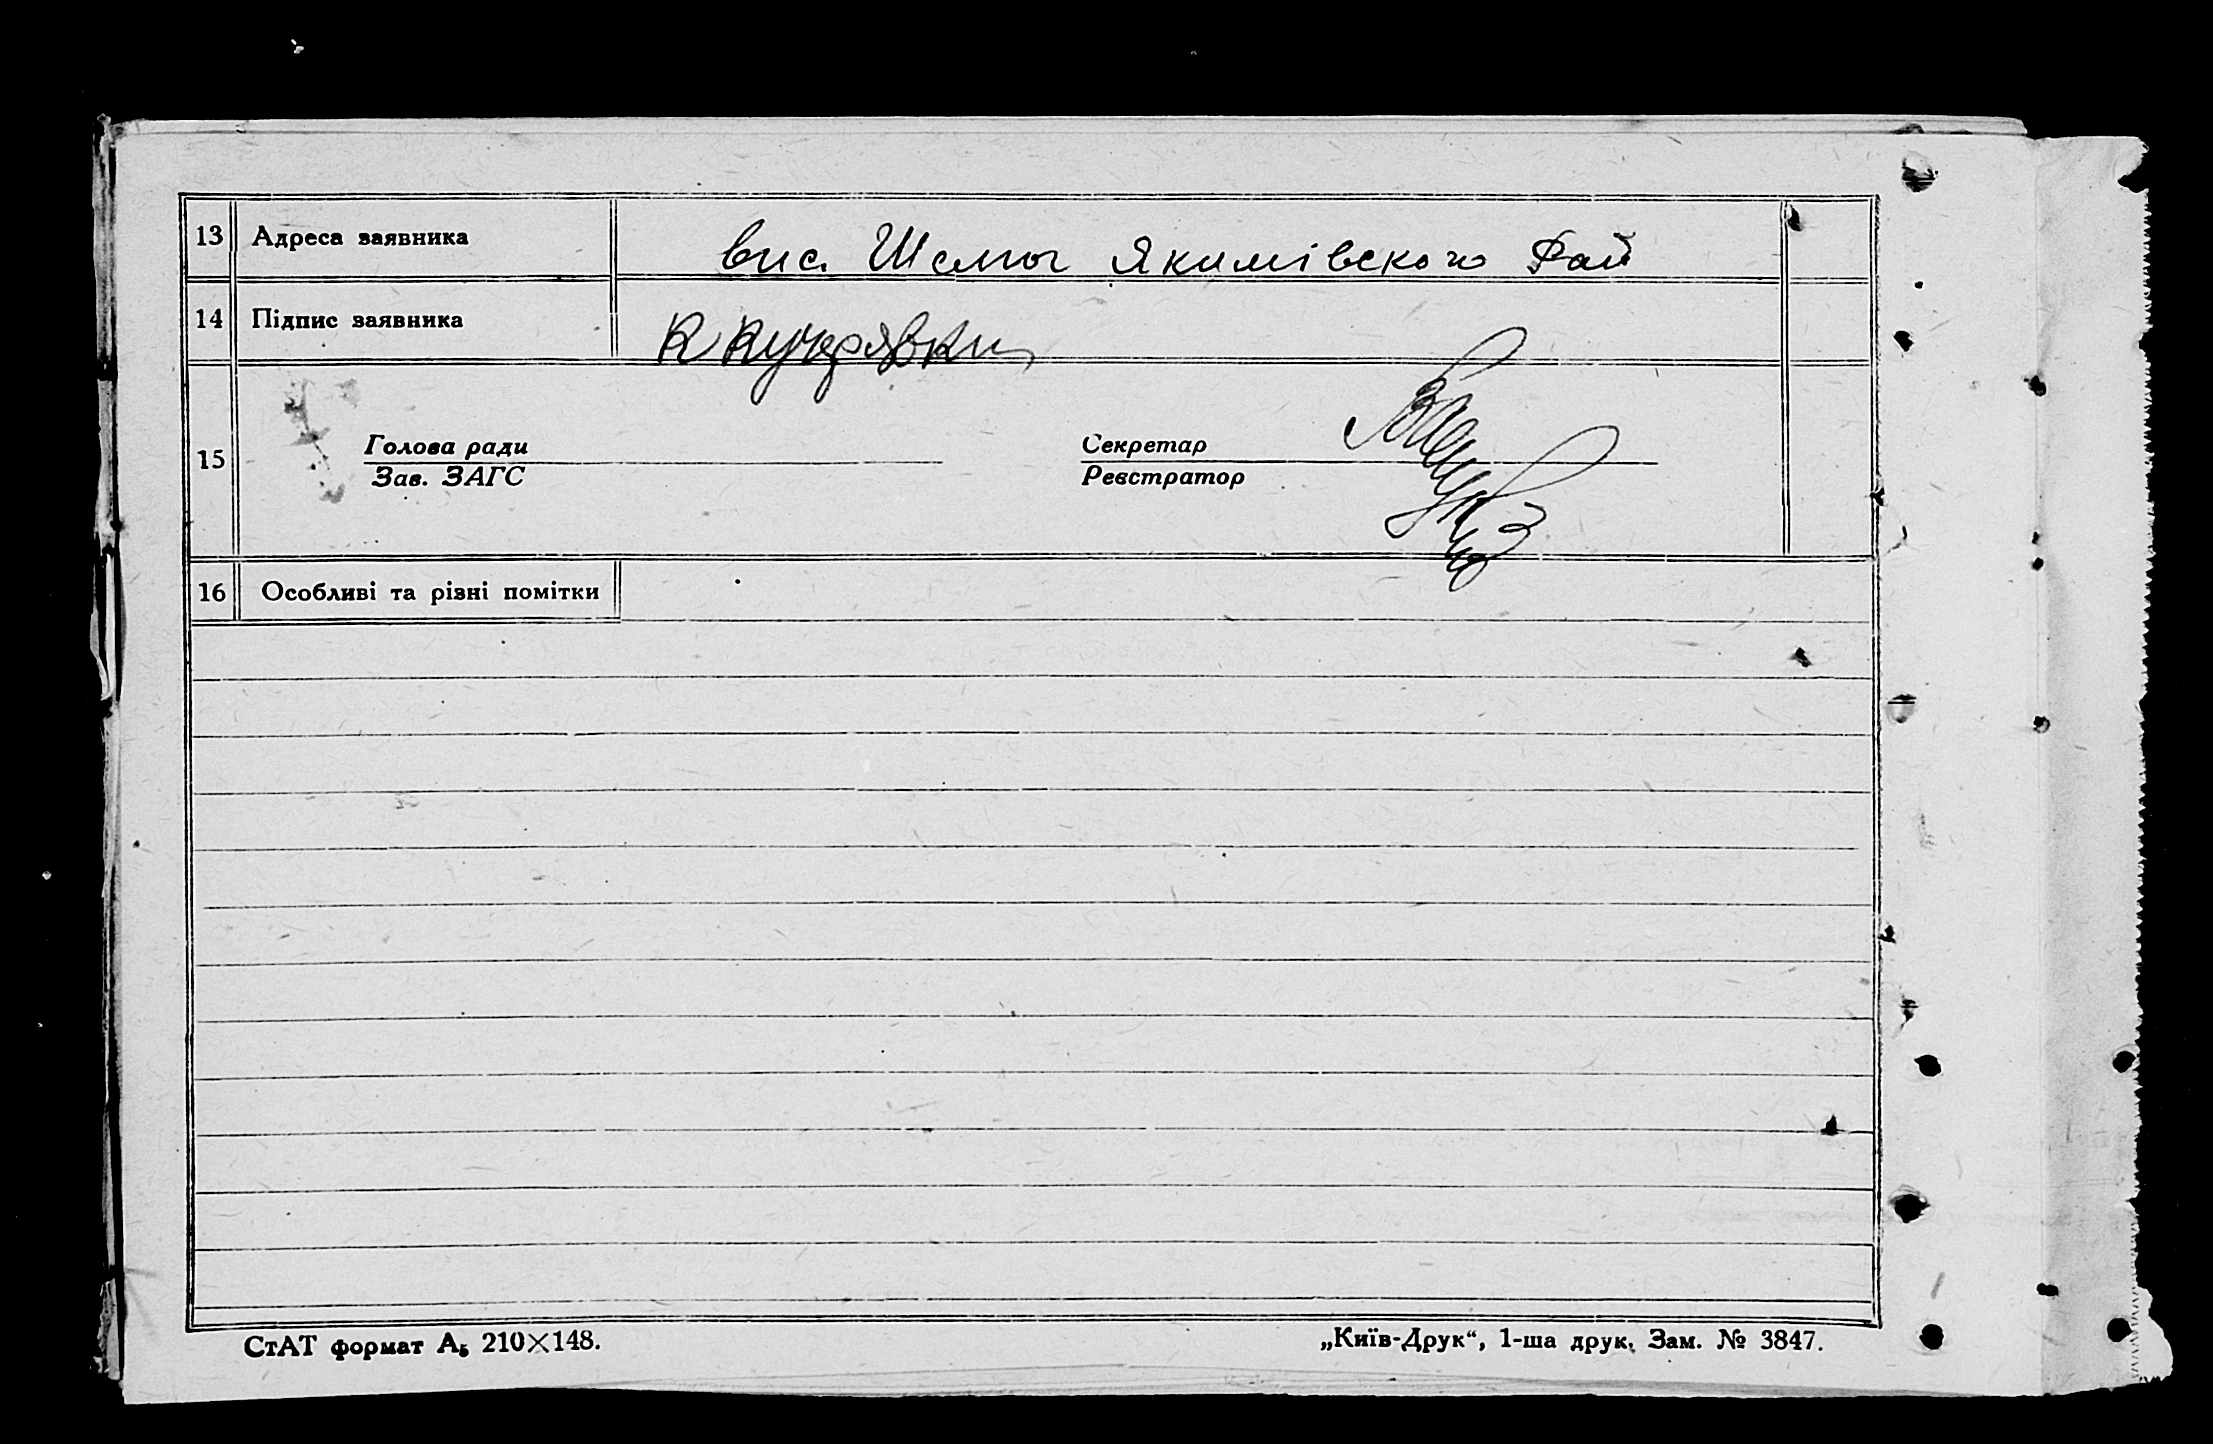 13 Адреса заявника вис. Якимівского Рай
14 Підпис заявника К Кундрявки
Голова ради Секретар
15
Зав. ЗАГС Реєстратор
16 Особливі та різні помітки
СтАТ формат А5 210×148.
„Київ-Друк“, 1-ша друк. Зам. № 3847.